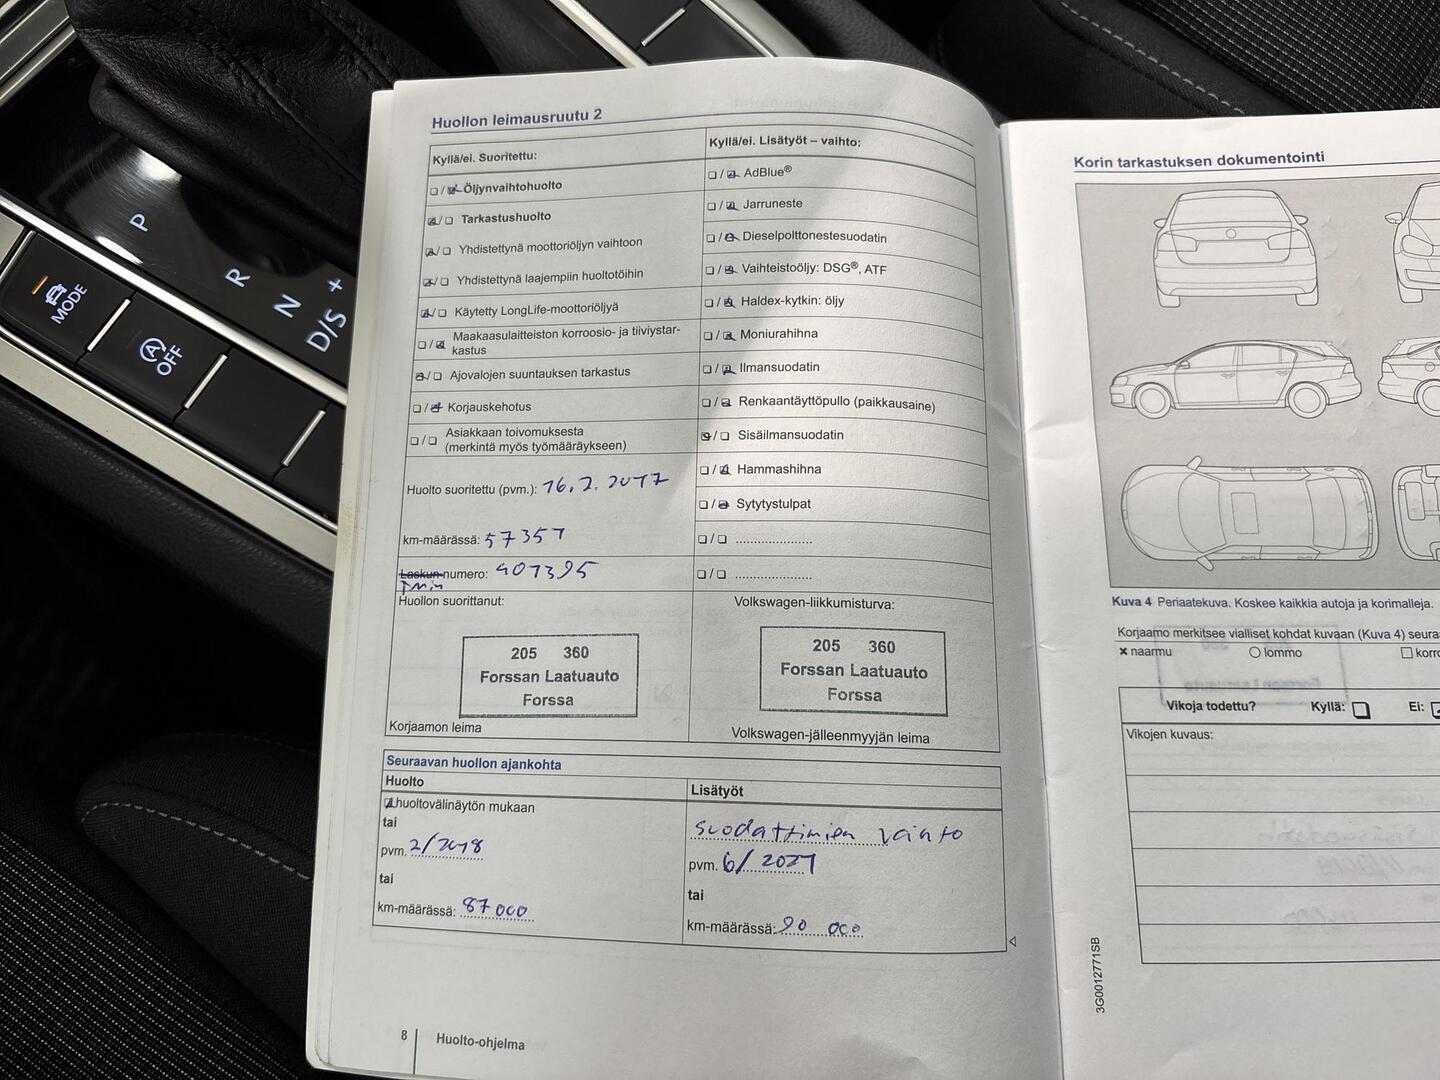 Huollon leimausruutu 2
Kyllä/ei. Suoritettu:
☐ / ☑ Öljynvaihtohuolto
☑ / ☐ Tarkastushuolto
☑ / ☐ Yhdistettynä moottoriöljyn vaihtoon
☑ / ☐ Yhdistettynä laajempiin huoltotöihin
☑ / ☐ Käytetty LongLife-moottoriöljyä
☐ / ☑ Maakaasulaitteiston korroosio- ja tiiviystar-
kastus
☑ / ☐ Ajovalojen suuntauksen tarkastus
☐ / ☑ Korjauskehotus
☐ / ☐ Asiakkaan toivomuksesta
(merkintä myös työmääräykseen)
Huolto suoritettu (pvm.): 16.2.2017
km-määrässä: 57357
Laskun numero: 407395
Huollon suorittanut:
205 360
Forssan Laatuauto
Forssa
Korjaamon leima
Kyllä/ei. Lisätyöt – vaihto:
☐ / ☑ AdBlue®
☐ / ☑ Jarruneste
☐ / ☑ Dieselpolttonestesuodatin
☐ / ☑ Vaihteistoöljy: DSG®, ATF
☐ / ☑ Haldex-kytkin: öljy
☐ / ☑ Moniurahihna
☐ / ☑ Ilmansuodatin
☐ / ☑ Renkaantäyttöpullo (paikkausaine)
☑ / ☐ Sisäilmansuodatin
☐ / ☑ Hammashihna
☐ / ☑ Sytytystulpat
☐ / ☐ .....................
☐ / ☐ .....................
Volkswagen-liikkumisturva:
205 360
Forssan Laatuauto
Forssa
Volkswagen-jälleenmyyjän leima
Seuraavan huollon ajankohta
Huolto
☑ huoltovälinäytön mukaan
tai
pvm. 2/2018
tai
km-määrässä: 87 000
Lisätyöt
suodattimien vaihto
pvm. 6/2021
tai
km-määrässä: 90 000
8 Huolto-ohjelma
Korin tarkastuksen dokumentointi
Kuva 4 Periaatekuva. Koskee kaikkia autoja ja korimalleja.
Korjaamo merkitsee vialliset kohdat kuvaan (Kuva 4) seura
× naarmu ○ lommo ☐ korro
Vikoja todettu? Kyllä: ☐ Ei: ☑
Vikojen kuvaus:
3G0012771SB
P
R
N
D/S +
MODE
A OFF